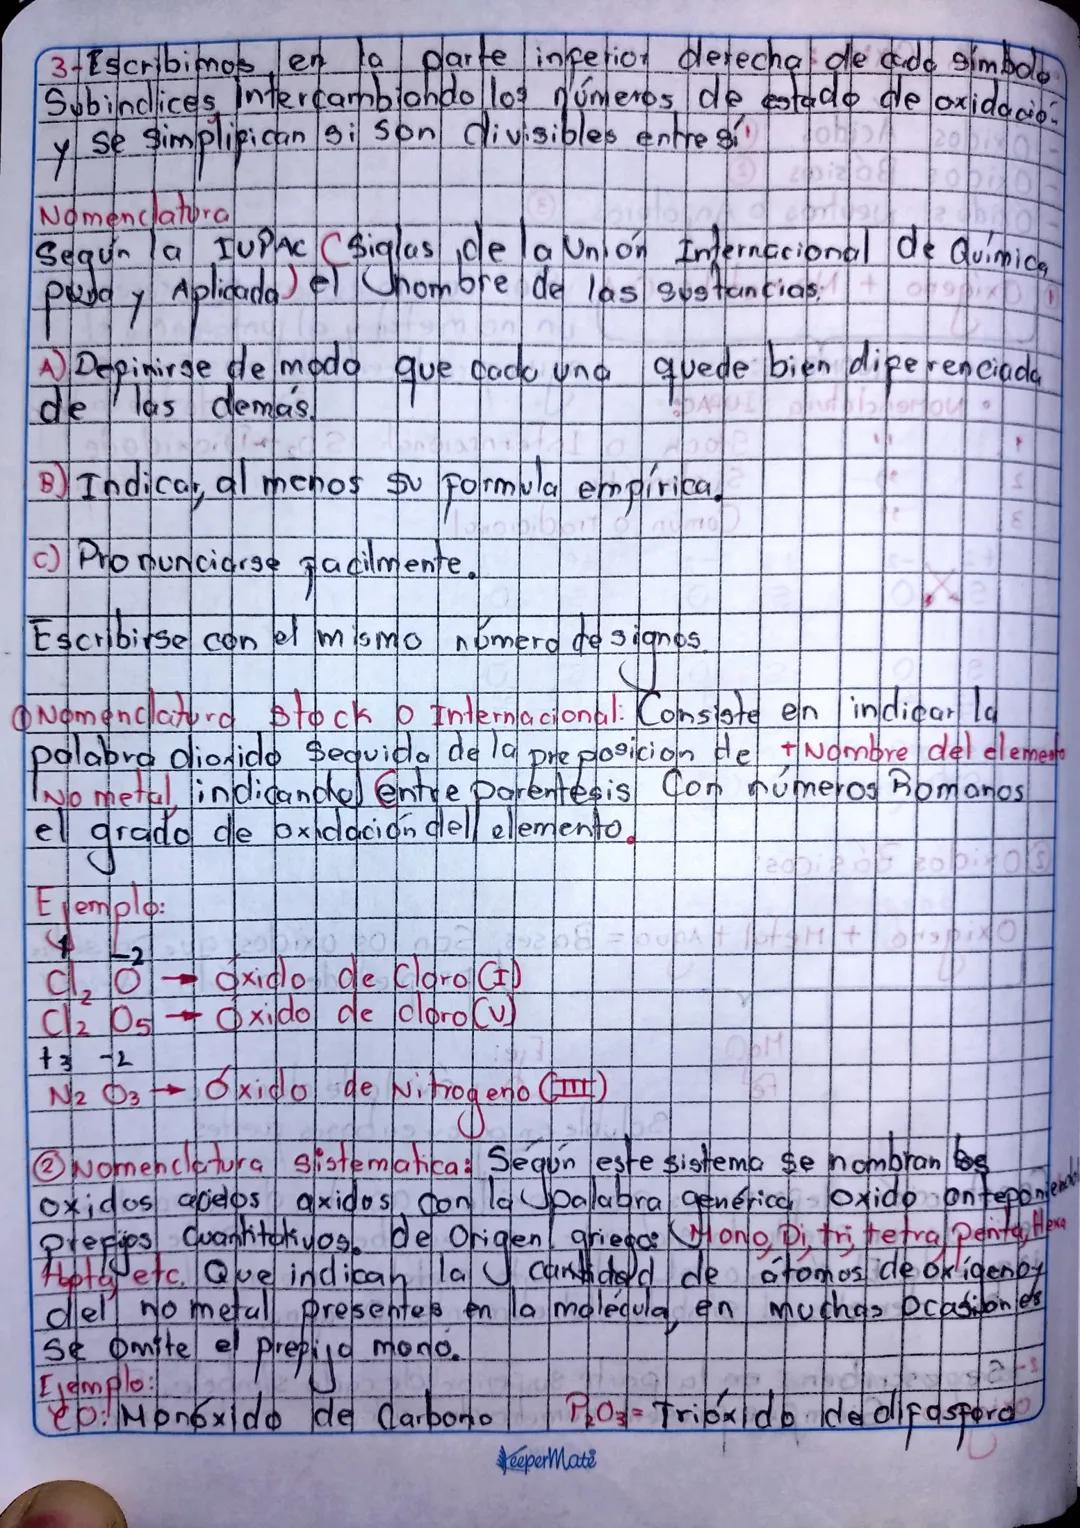 3-Escribimos en la parte inferior derecha de cada símbolo
Subíndices intercambiando los números de estado de oxidación
y se simplifican si son divisibles entre sí
Nomenclatura
Según la IUPAC (Siglas de la Unión Internacional de Química
pura y Aplicada) el nombre de las sustancias:
A) Definirse de modo que cada una quede bien diferenciada
de las demás.
B) Indicar, al menos su formula empírica.
C) Pronunciarse facilmente.
Escribirse con el mismo número de signos
① Nomenclatura Stock o Internacional: Consiste en indicar la
palabra dioxido seguida de la preposicion de + Nombre del elemento
No metal, indicando entre parentesis Con números Romanos
el grado de oxidación del elemento.
Ejemplo:
1 -2
Cl2 O → óxido de Cloro (I)
Cl2 O5 → óxido de cloro (V)
+3 -2
N2 O3 → Óxido de Nitrogeno (III)
② Nomenclatura sistematica: Según este sistema se nombran los
oxidos acidos oxidos con la palabra genérica oxido anteponiendo
prefijos Cuantitativos. de Origen griego: Mono, Di, tri, tetra, Penta, Hexa
Hepta, etc. Que indican la cantidad de átomos de oxígeno y
del no metal presentes en la molécula, en muchas ocasiones
se omite el prefijo mono.
Ejemplo:
CO: Monóxido de Carbono P2O3 = Trióxido de difosforo
KeeperMate